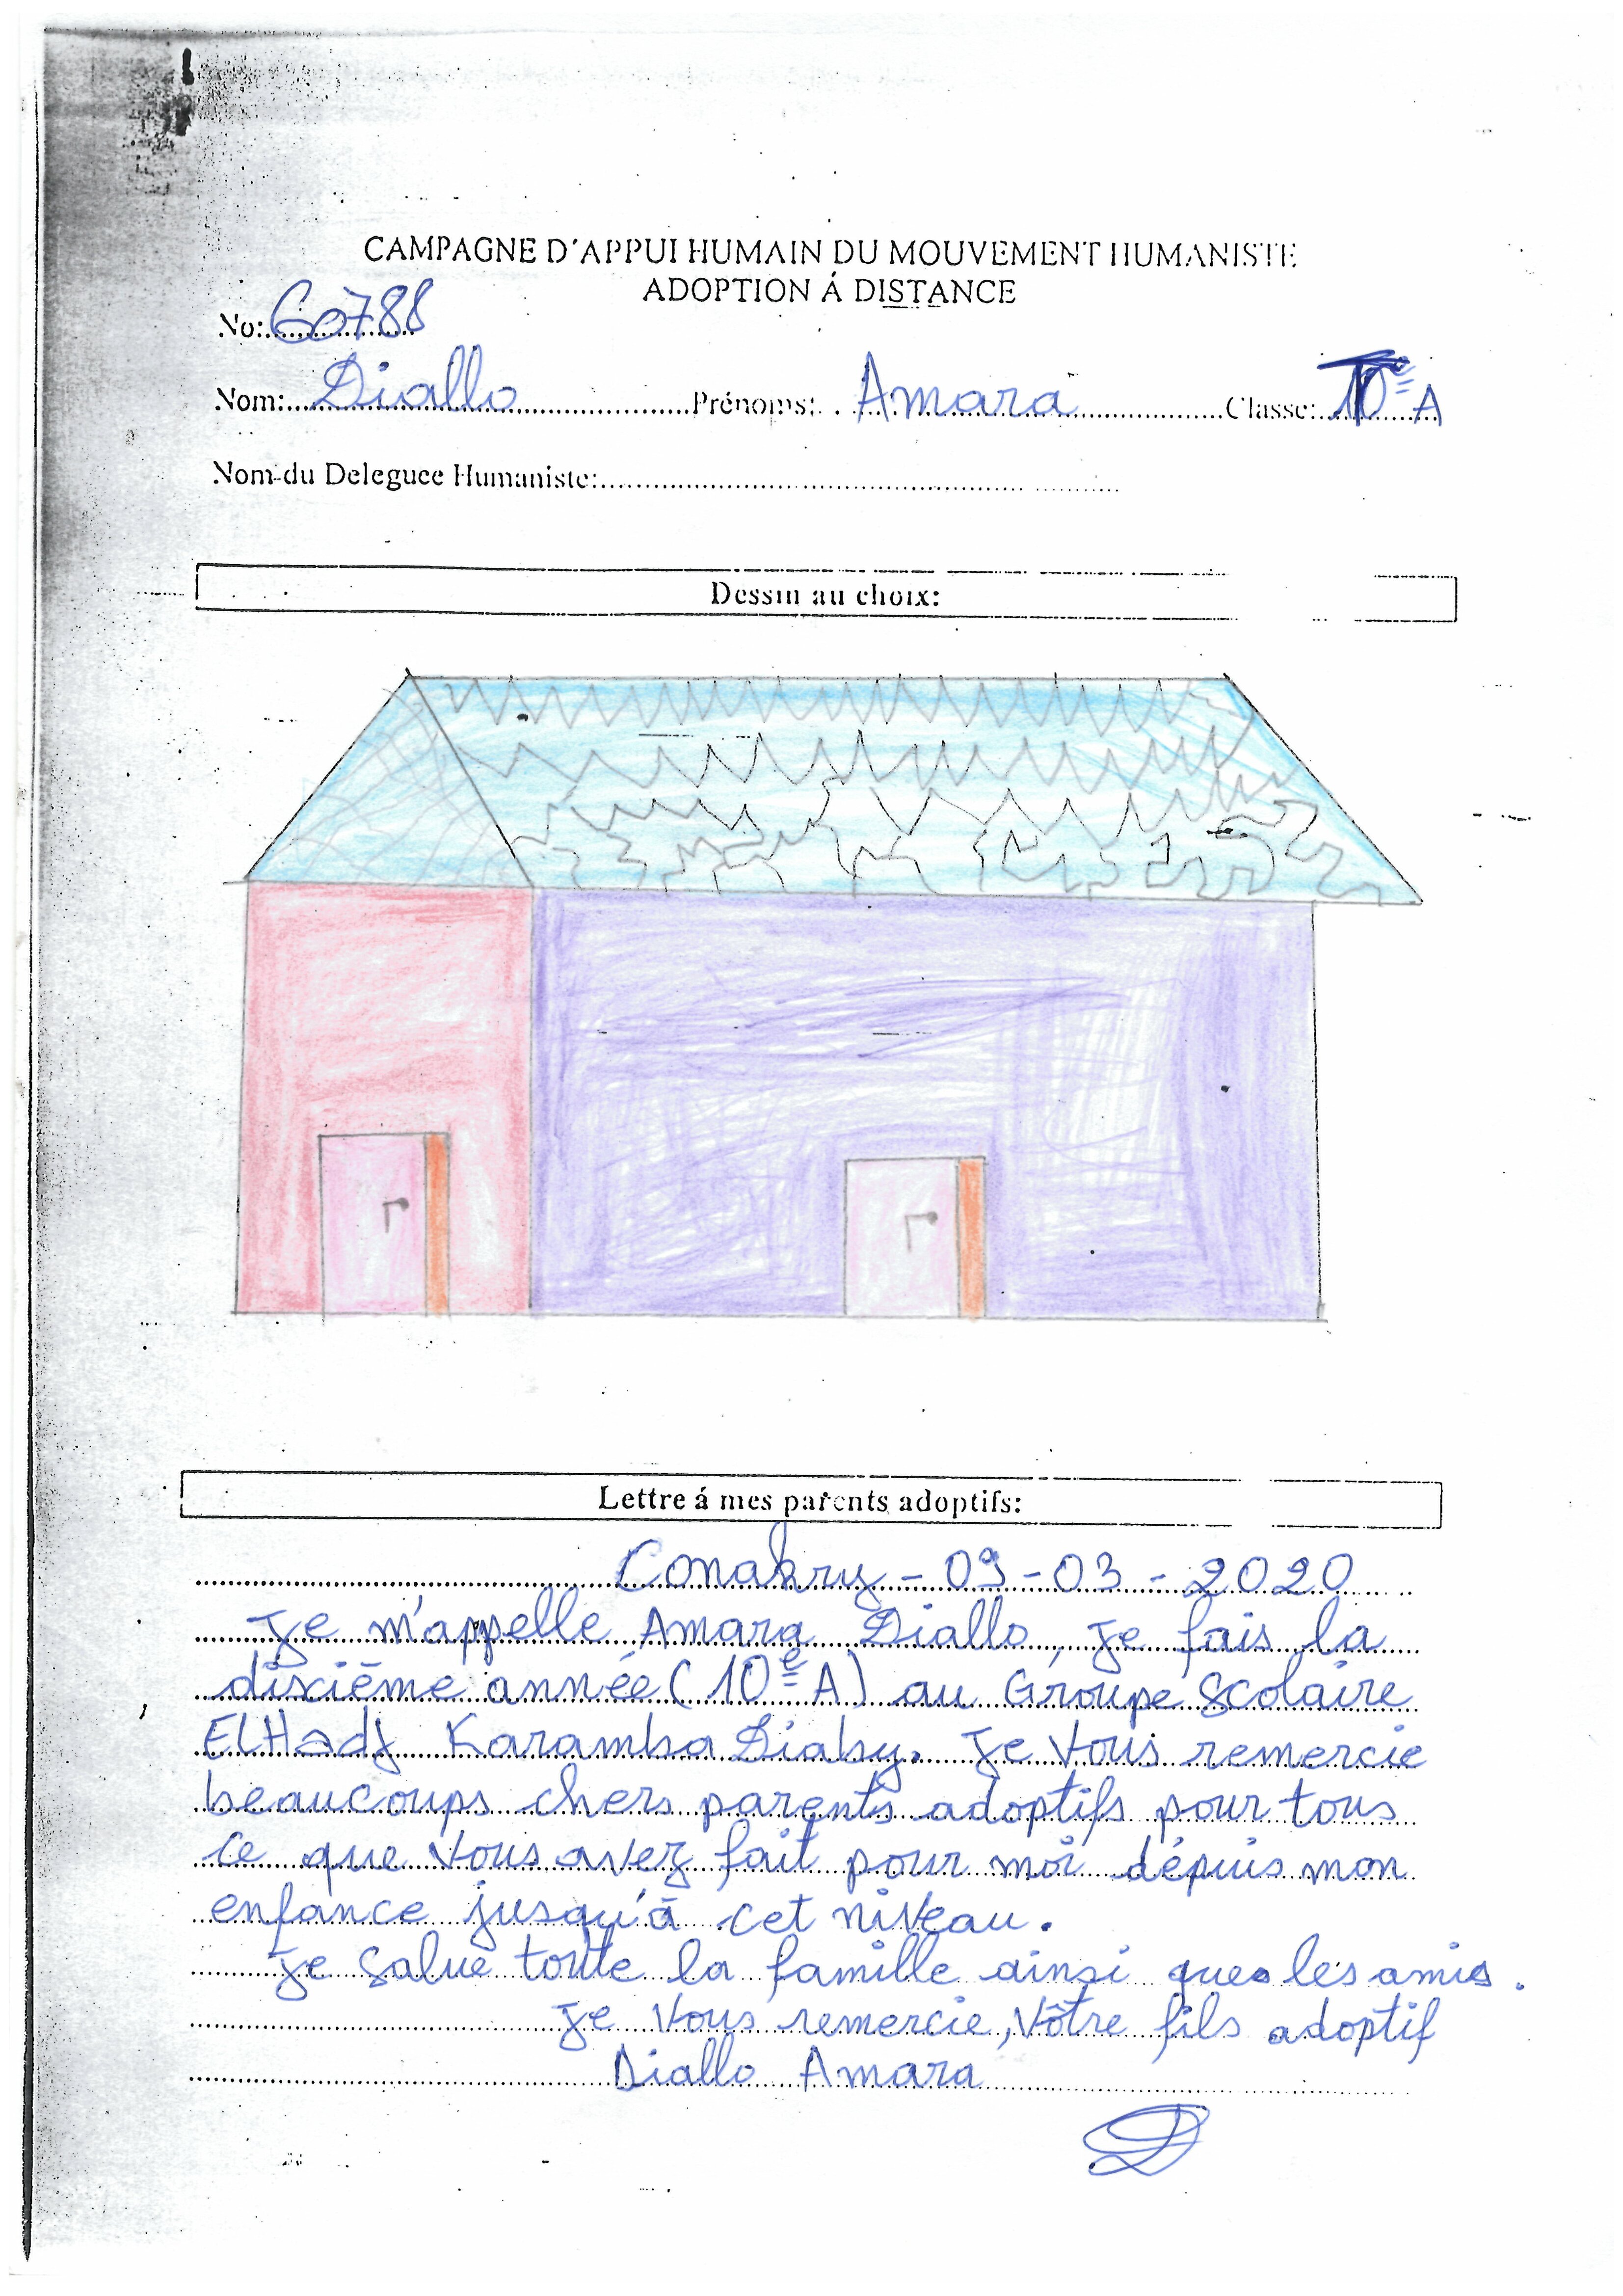 CAMPAGNE D'APPUI HUMAIN DU MOUVEMENT HUMANISTE
ADOPTION Á DISTANCE
No: 60788
Nom: Diallo Prénoms: Amara Classe: 10e A
Nom du Deleguee Humaniste:
Dessin au choix:
Lettre á mes parents adoptifs:
Conakry - 09 - 03 - 2020
Je m'appelle Amara Diallo, Je fais la
dixième année (10e A) au Groupe Scolaire
ElHadj Karamba Diaby. Je Vous remercie
beaucoups chers parents adoptifs pour tous
ce que Vous avez fait pour moi dépuis mon
enfance jusqu'à cet niveau.
Je Salue toute la famille ainsi que les amis.
Je Vous remercie, Vôtre fils adoptif
Diallo Amara